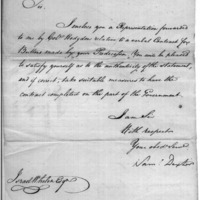 Sir,
I enclose you a Representation forwarded
to me by Genl Hodgdon relative to a verbal Contract for
made by your Predecessor. You will be pleased
to satisfy yourself as to the authenticity of the Statement,
and if correct, take suitable measures to have the
contract completed on the part of the Government.
I am Sir
With respect
Your obed Servt
Saml Dexter
Israel Whelen Esqr